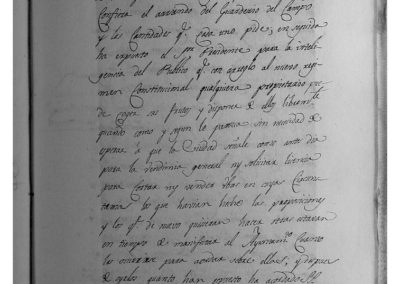 el arriendo del Guarderio del Campo
y las Cantidades q.e cada uno pide; en seguida
ha expuesto el Sor. Presidente para la inteli-
gencia del Publico q.e con arreglo al nuevo regi-
men Constitucional qualquiera propietario pue-
de coger su fruto y disponer de ellos librem.te
quando como y segun le parezca sin necesidad de
esperar à que la Ciudad señale como antes dia
para la vendimia general ny solicitar licencia
para Cortar ny vender Ubas en cuyas Circuns-
tancias los que havian hecho las proposiciones
y los q.e de nuevo quisieran hacer otras estavan
en tiempo de manifestar al Ayuntam.to Quanto
les ocurriere para acordar sobre ellas, y despues
de oydos quanto han puesto ha acordado